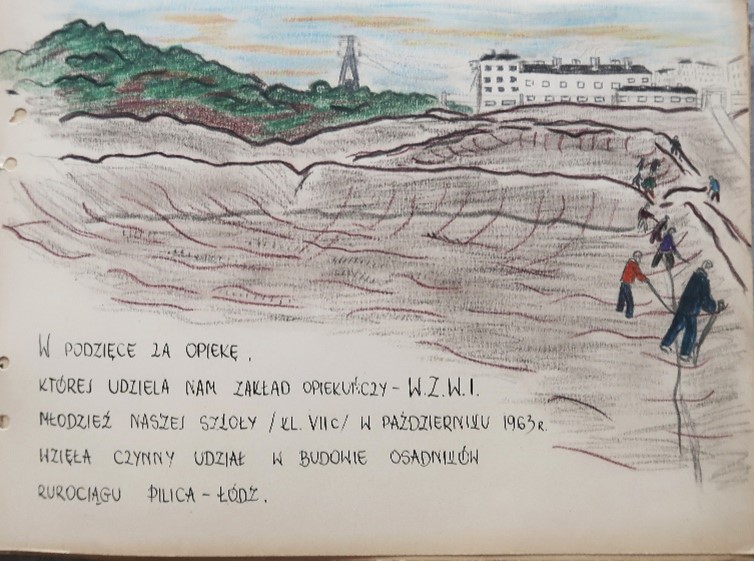 W PODZIĘCE ZA OPIEKĘ,
KTÓREJ UDZIELA NAM ZAKŁAD OPIEKUŃCZY - W.Z.W.I.
MŁODZIEŻ NASZEJ SZKOŁY /KL. VII C/ W PAŹDZIERNIKU 1963 R.
WZIĘŁA CZYNNY UDZIAŁ W BUDOWIE OSADNIKÓW
RUROCIĄGU PILICA - ŁÓDŹ.